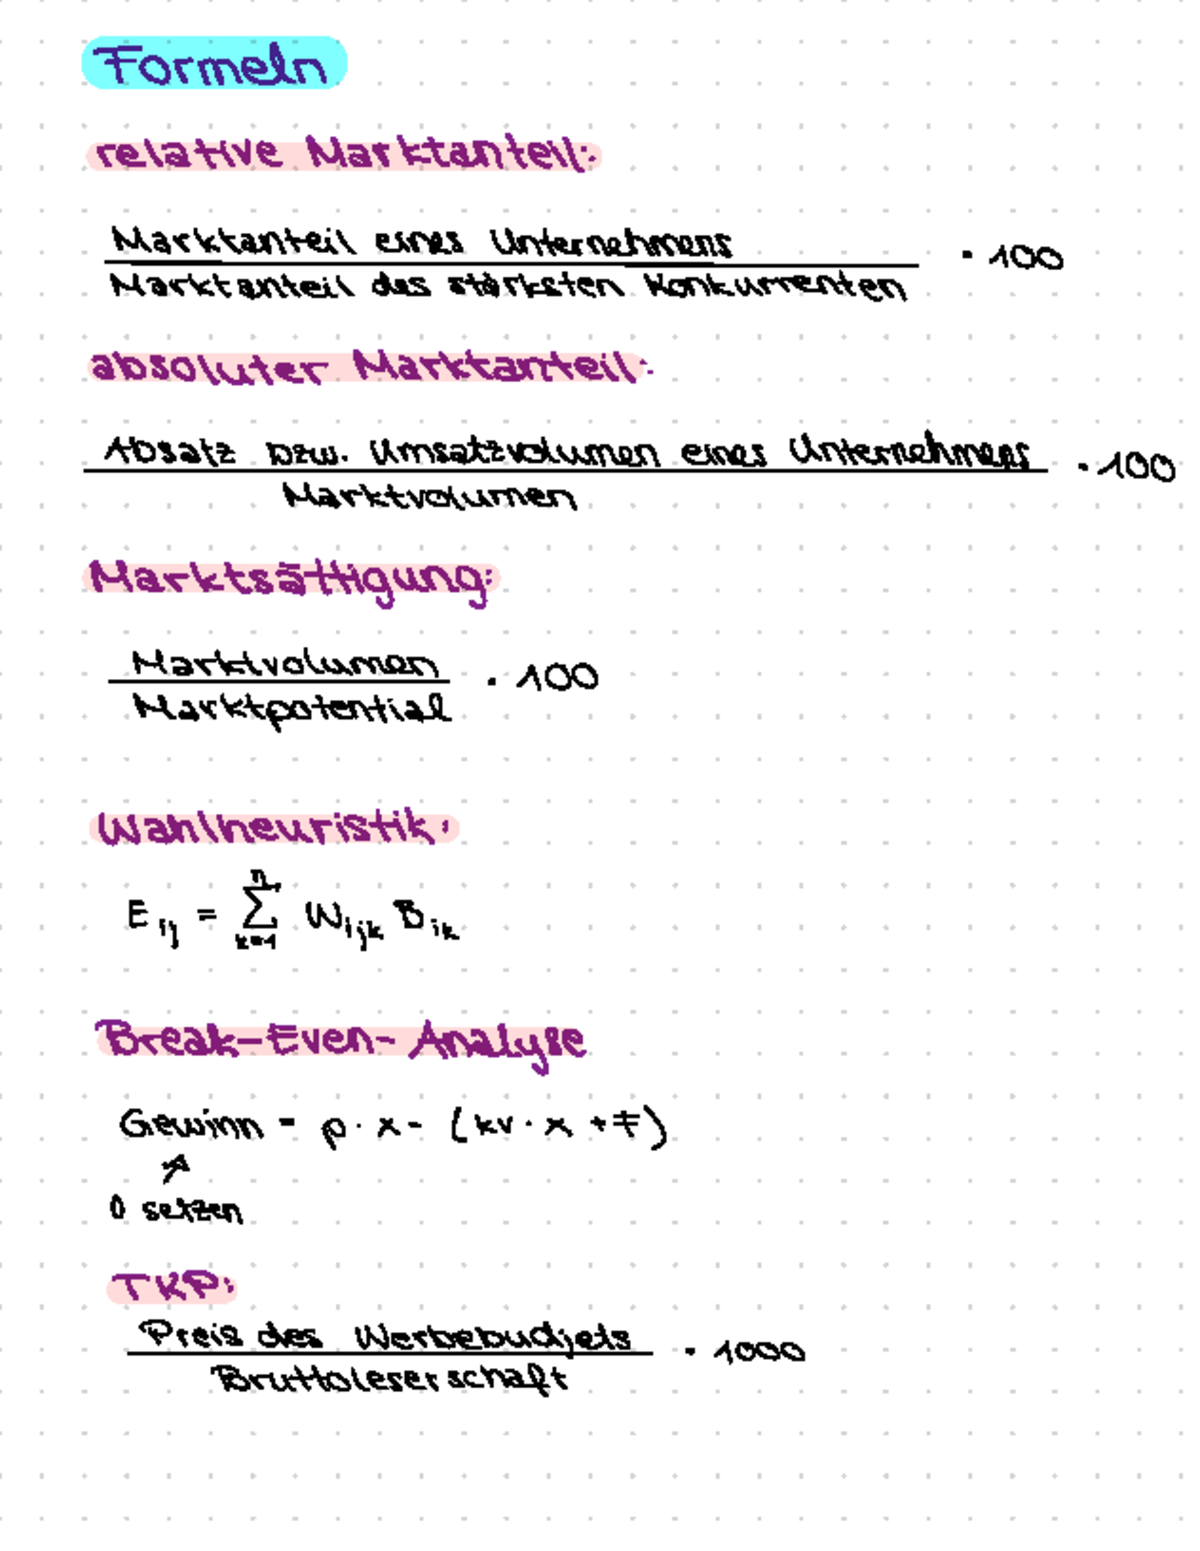 Formeln
relative Marktanteil:
Marktanteil eines Unternehmens
Marktanteil des stärksten Konkurrenten · 100
absoluter Marktanteil:
Absatz bzw. Umsatzvolumen eines Unternehmens
Marktvolumen · 100
Marktsättigung:
Marktvolumen
Marktpotential · 100
Wahlheuristik:
E ij = n ∑ k=1 W ijk B ik
Break-Even-Analyse
Gewinn = p · x - (kv · x + F)
↗
0 setzen
TKP:
Preis des Werbebudjets
Bruttoleserschaft · 1000